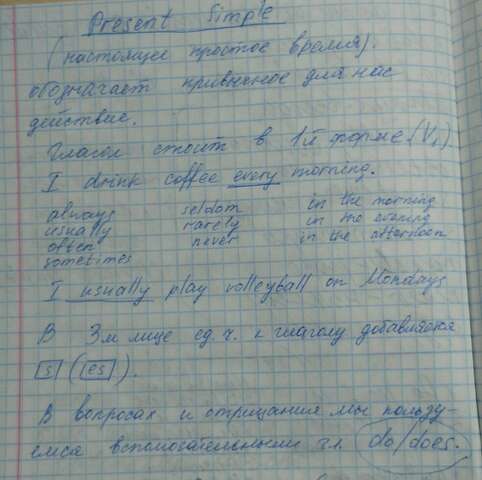 Present Simple
(настоящее простое время).
обозначает привычное для нас
действие.
Глагол стоит в 1й форме (V₁)
I drink coffee every morning.
always seldom in the morning
usually rarely in the evening
often never in the afternoon
sometimes
I usually play volleyball on Mondays
В 3м лице ед. ч. к глаголу добавляется
s (es).
В вопросах и отрицаниях мы пользу-
емся вспомогательными гл. do/does.